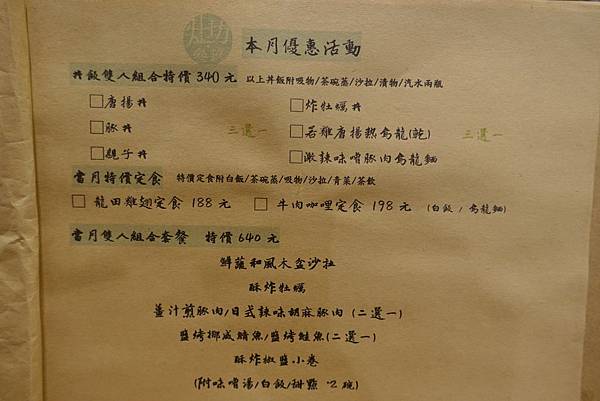 本月優惠活動
丼飯雙人組合特價340元 以上丼飯附吸物/茶碗蒸/沙拉/漬物/汽水兩瓶
唐揚丼 炸牡蠣丼
豚丼 三選一 若雞唐揚熱烏龍(乾) 三選一
親子丼 激辣味噌豚肉烏龍麵
當月特價定食 特價定食附白飯/茶碗蒸/吸物/沙拉/青菜/茶飲
龍田雞翅定食 188 元 牛肉咖哩定食 198 元 (白飯 / 烏龍麵)
當月雙人組合套餐 特價640 元
鮮蔬和風木盆沙拉
酥炸牡蠣
薑汁煎豚肉/日式辣味胡麻豚肉 (二選一)
鹽烤挪威鯖魚/鹽烤鮭魚(二選一)
酥炸椒鹽小卷
(附味噌湯/白飯/甜點 *2 碗)